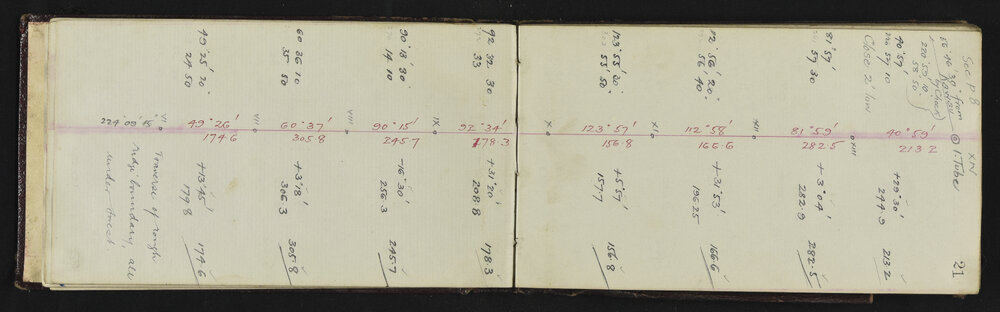 21
See p 8
XIV
@ I: Tube
52° 46' 30" from
220° 59' 10"
58' 50"
40° 57'
57 10
Close 2' low
40° 59'
213.2
+29° 30'
244.9
213.2
XIII
81° 57'
57 30
81° 59'
282.5
+3° 04'
282.9
282.5
XII
112° 56' 20"
56' 40"
112° 58'
166.6
+31° 53'
196.25
166.6
XI
123° 55' 20"
55' 50"
123° 57'
156.8
+5° 57'
157.7
156.8
X
92 32 30
33
92° 34'
178.3
+31° 20'
208.8
178.3
IX
90° 13' 30"
14 10
90° 15'
245.7
-16° 30'
256.3
245.7
VIII
60 36 10
35 50
60° 37'
305.8
+3° 18'
306.3
305.8
VII
49° 25' 20"
24 50
49° 26'
174.6
+13° 45'
179.8
174.6
VI
224° 09' 15"
Traverse of rough
boundary, all
under